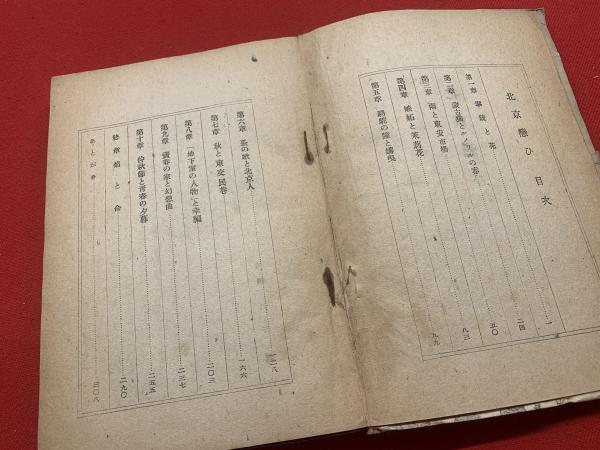 北京戀ひ 目次
第一章 華燭と花 一
第二章 蒙古風とルノワルの春 二四
第三章 雨と東安市場 五〇
第四章 嫉妬と茉莉花 八三
第五章 の鈴と 九九
第六章 茶の歌と北京人 一二八
第七章 秋と東交民巷 一六六
第八章 「地下室の人物」と幸福 二〇三
第九章 賣春の家と幻想曲 二三七
第十章 仲秋節と青春の夕暮 二五五
終章 館と命 二九〇
あとがき 三〇八